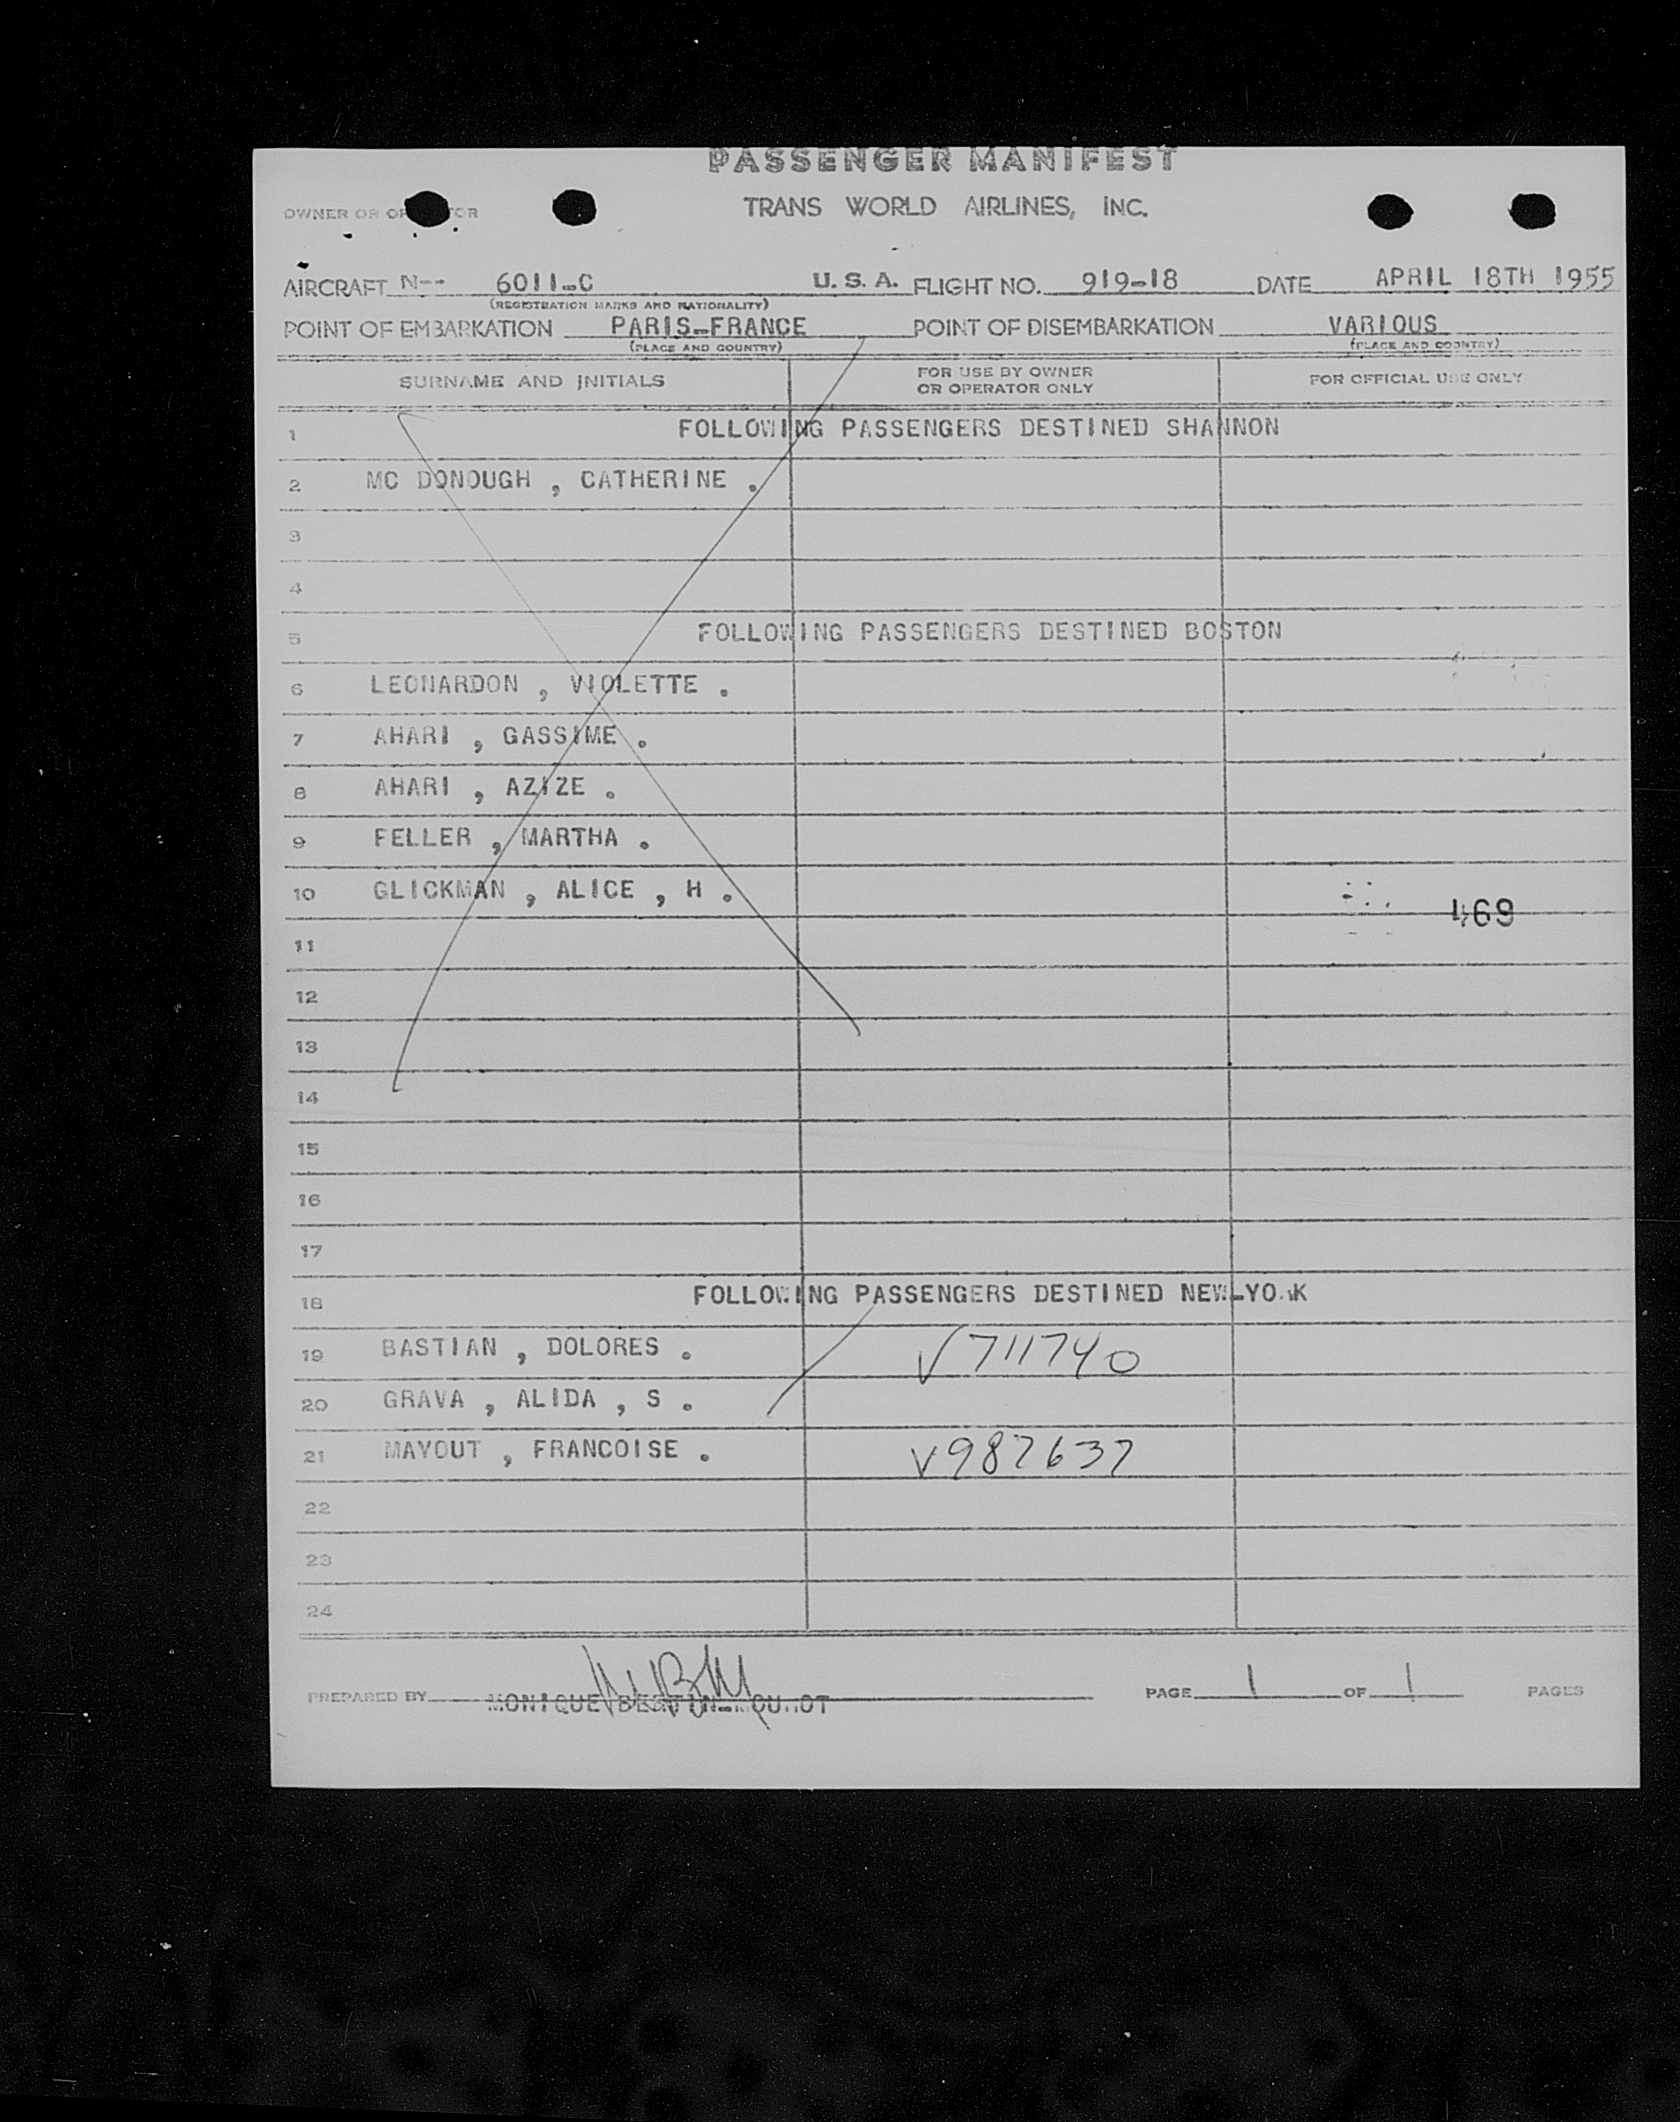 PASSENGER MANIFEST
OWNER OR OPERATOR TRANS WORLD AIRLINES, INC.
AIRCRAFT N-- 6011-C U. S. A. FLIGHT NO. 919-18 DATE APRIL 18TH 1955
(REGISTRATION MARKS AND NATIONALITY)
POINT OF EMBARKATION PARIS-FRANCE POINT OF DISEMBARKATION VARIOUS
(PLACE AND COUNTRY) (PLACE AND COUNTRY)
SURNAME AND INITIALS FOR USE BY OWNER OR OPERATOR ONLY FOR OFFICIAL USE ONLY
1 FOLLOWING PASSENGERS DESTINED SHANNON
2 MC DONOUGH , CATHERINE .
3
4
5 FOLLOWING PASSENGERS DESTINED BOSTON
6 LEONARDON , VIOLETTE .
7 AHARI , GASSIME .
8 AHARI , AZIZE .
9 FELLER , MARTHA .
10 GLICKMAN , ALICE , H .
469
11
12
13
14
15
16
17
18 FOLLOWING PASSENGERS DESTINED NEW-YORK
19 BASTIAN , DOLORES . V711740
20 GRAVA , ALIDA , S .
21 MAYOUT , FRANCOISE . V987637
22
23
24
PREPARED BY MONIQUE PAGE 1 OF 1 PAGES